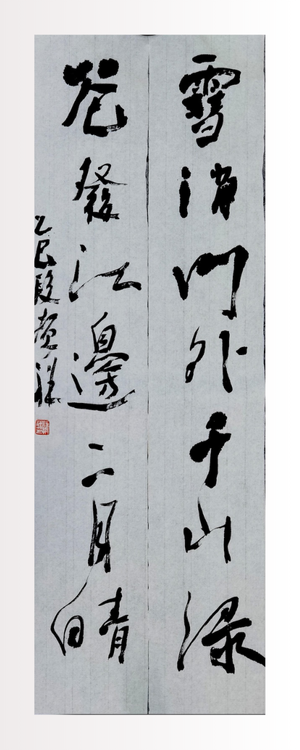 雪消門外千山綠
花發江邊二月晴
乙巳